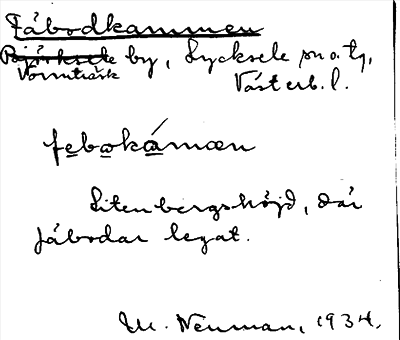 Fäbodkammen
Björksele by, Lycksele sn o. tg,
Vormträsk
Västerb. l.
febokámæn
Liten bergshöjd, där
fäbodar legat.
M. Neuman, 1934.